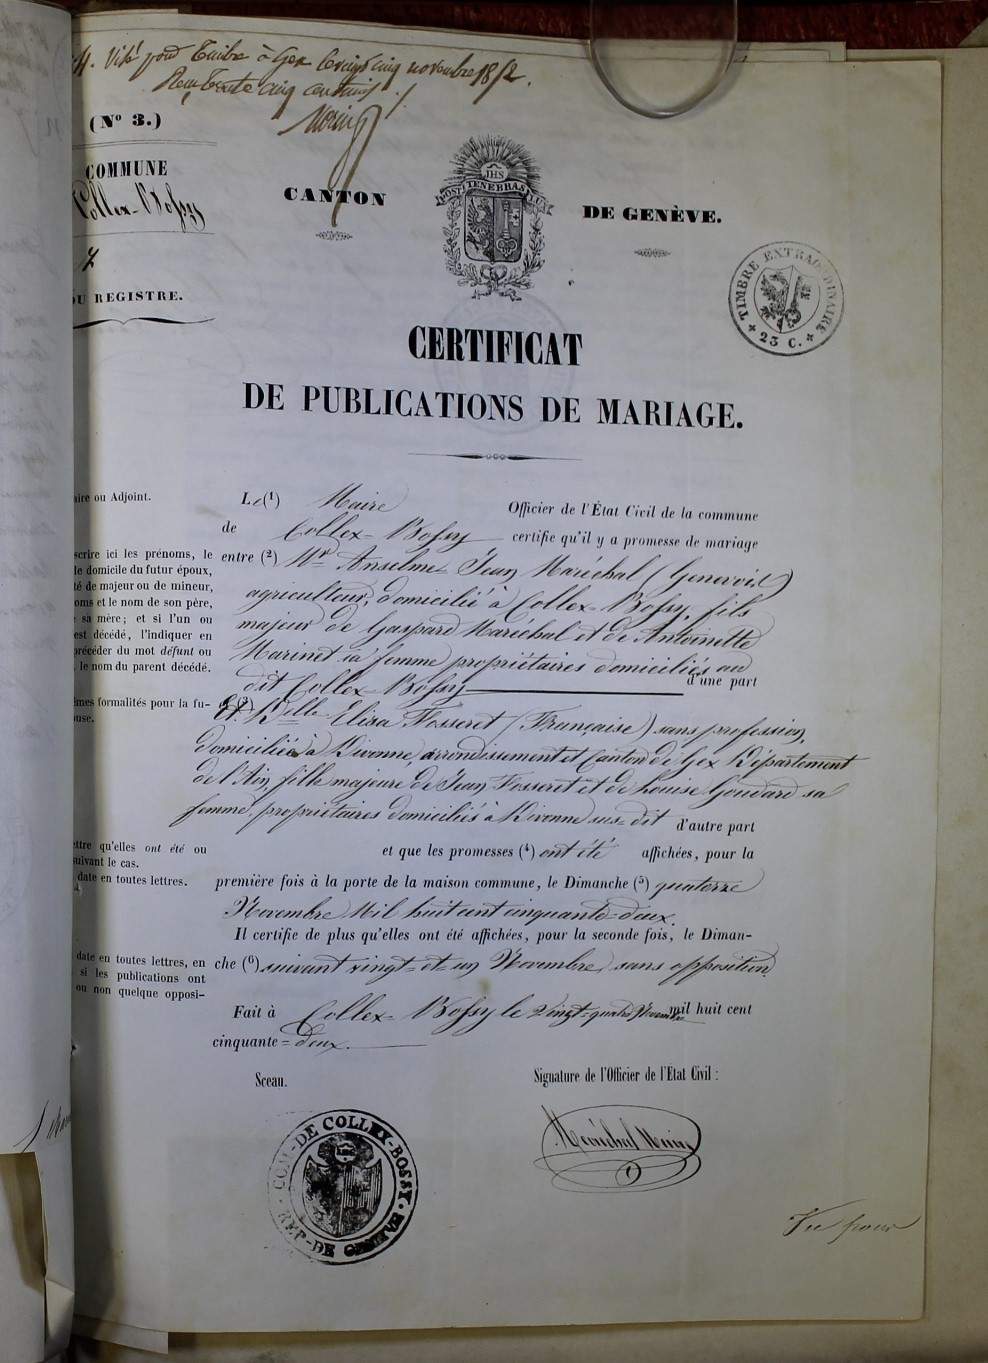 Visé pour Timbre à Gex le vingt cinq novembre 1852.
Reçu trente cinq centimes
(Nº 3.)
COMMUNE
Collex-Bossy
7
DU REGISTRE.
CANTON
JHS
POST TENEBRAS LUX
DE GENÈVE.
TIMBRE EXTRAORDINAIRE
23 C.
CERTIFICAT
DE PUBLICATIONS DE MARIAGE.
aire ou Adjoint.
Le (1) Maire Officier de l'État Civil de la commune
de Collex-Bossy certifie qu'il y a promesse de mariage
scrire ici les prénoms, le
le domicile du futur époux,
té de majeur ou de mineur,
oms et le nom de son père,
sa mère; et si l'un ou
est décédé, l'indiquer en
précéder du mot défunt ou
le nom du parent décédé.
entre (2) Mr Anselme Jean Maréchal (Genevois)
agriculteur, domicilié à Collex-Bossy, fils
majeur de Gaspard Maréchal et de Antoinette
Marinet sa femme propriétaires domiciliés au
dit Collex-Bossy d'une part
êmes formalités pour la fu-
ouse.
Et (3) Delle Elisa Fosseret (Française) sans profession,
domiciliée à Divonne, arrondissement et Canton de Gex Département
de l'Ain, fille majeure de Jean Fosseret et de Louise Goudard sa
femme, propriétaires domiciliés à Divonne sus-dit d'autre part
ettre qu'elles ont été ou
suivant le cas.
date en toutes lettres.
et que les promesses (4) ont été affichées, pour la
première fois à la porte de la maison commune, le Dimanche (5) quatorze
Novembre Mil huit cent cinquante-deux.
Il certifie de plus qu'elles ont été affichées, pour la seconde fois, le Diman-
date en toutes lettres, en
si les publications ont
ou non quelque opposi-
che (6) suivant vingt-et-un Novembre, sans opposition
Fait à Collex-Bossy le vingt-quatre Novembre mil huit cent
cinquante=deux.
Sceau.
Signature de l'Officier de l'État Civil :
COM-DE COLLEX-BOSSY.
REP-DE GENEVE
Maréchal Maire
Vu pour